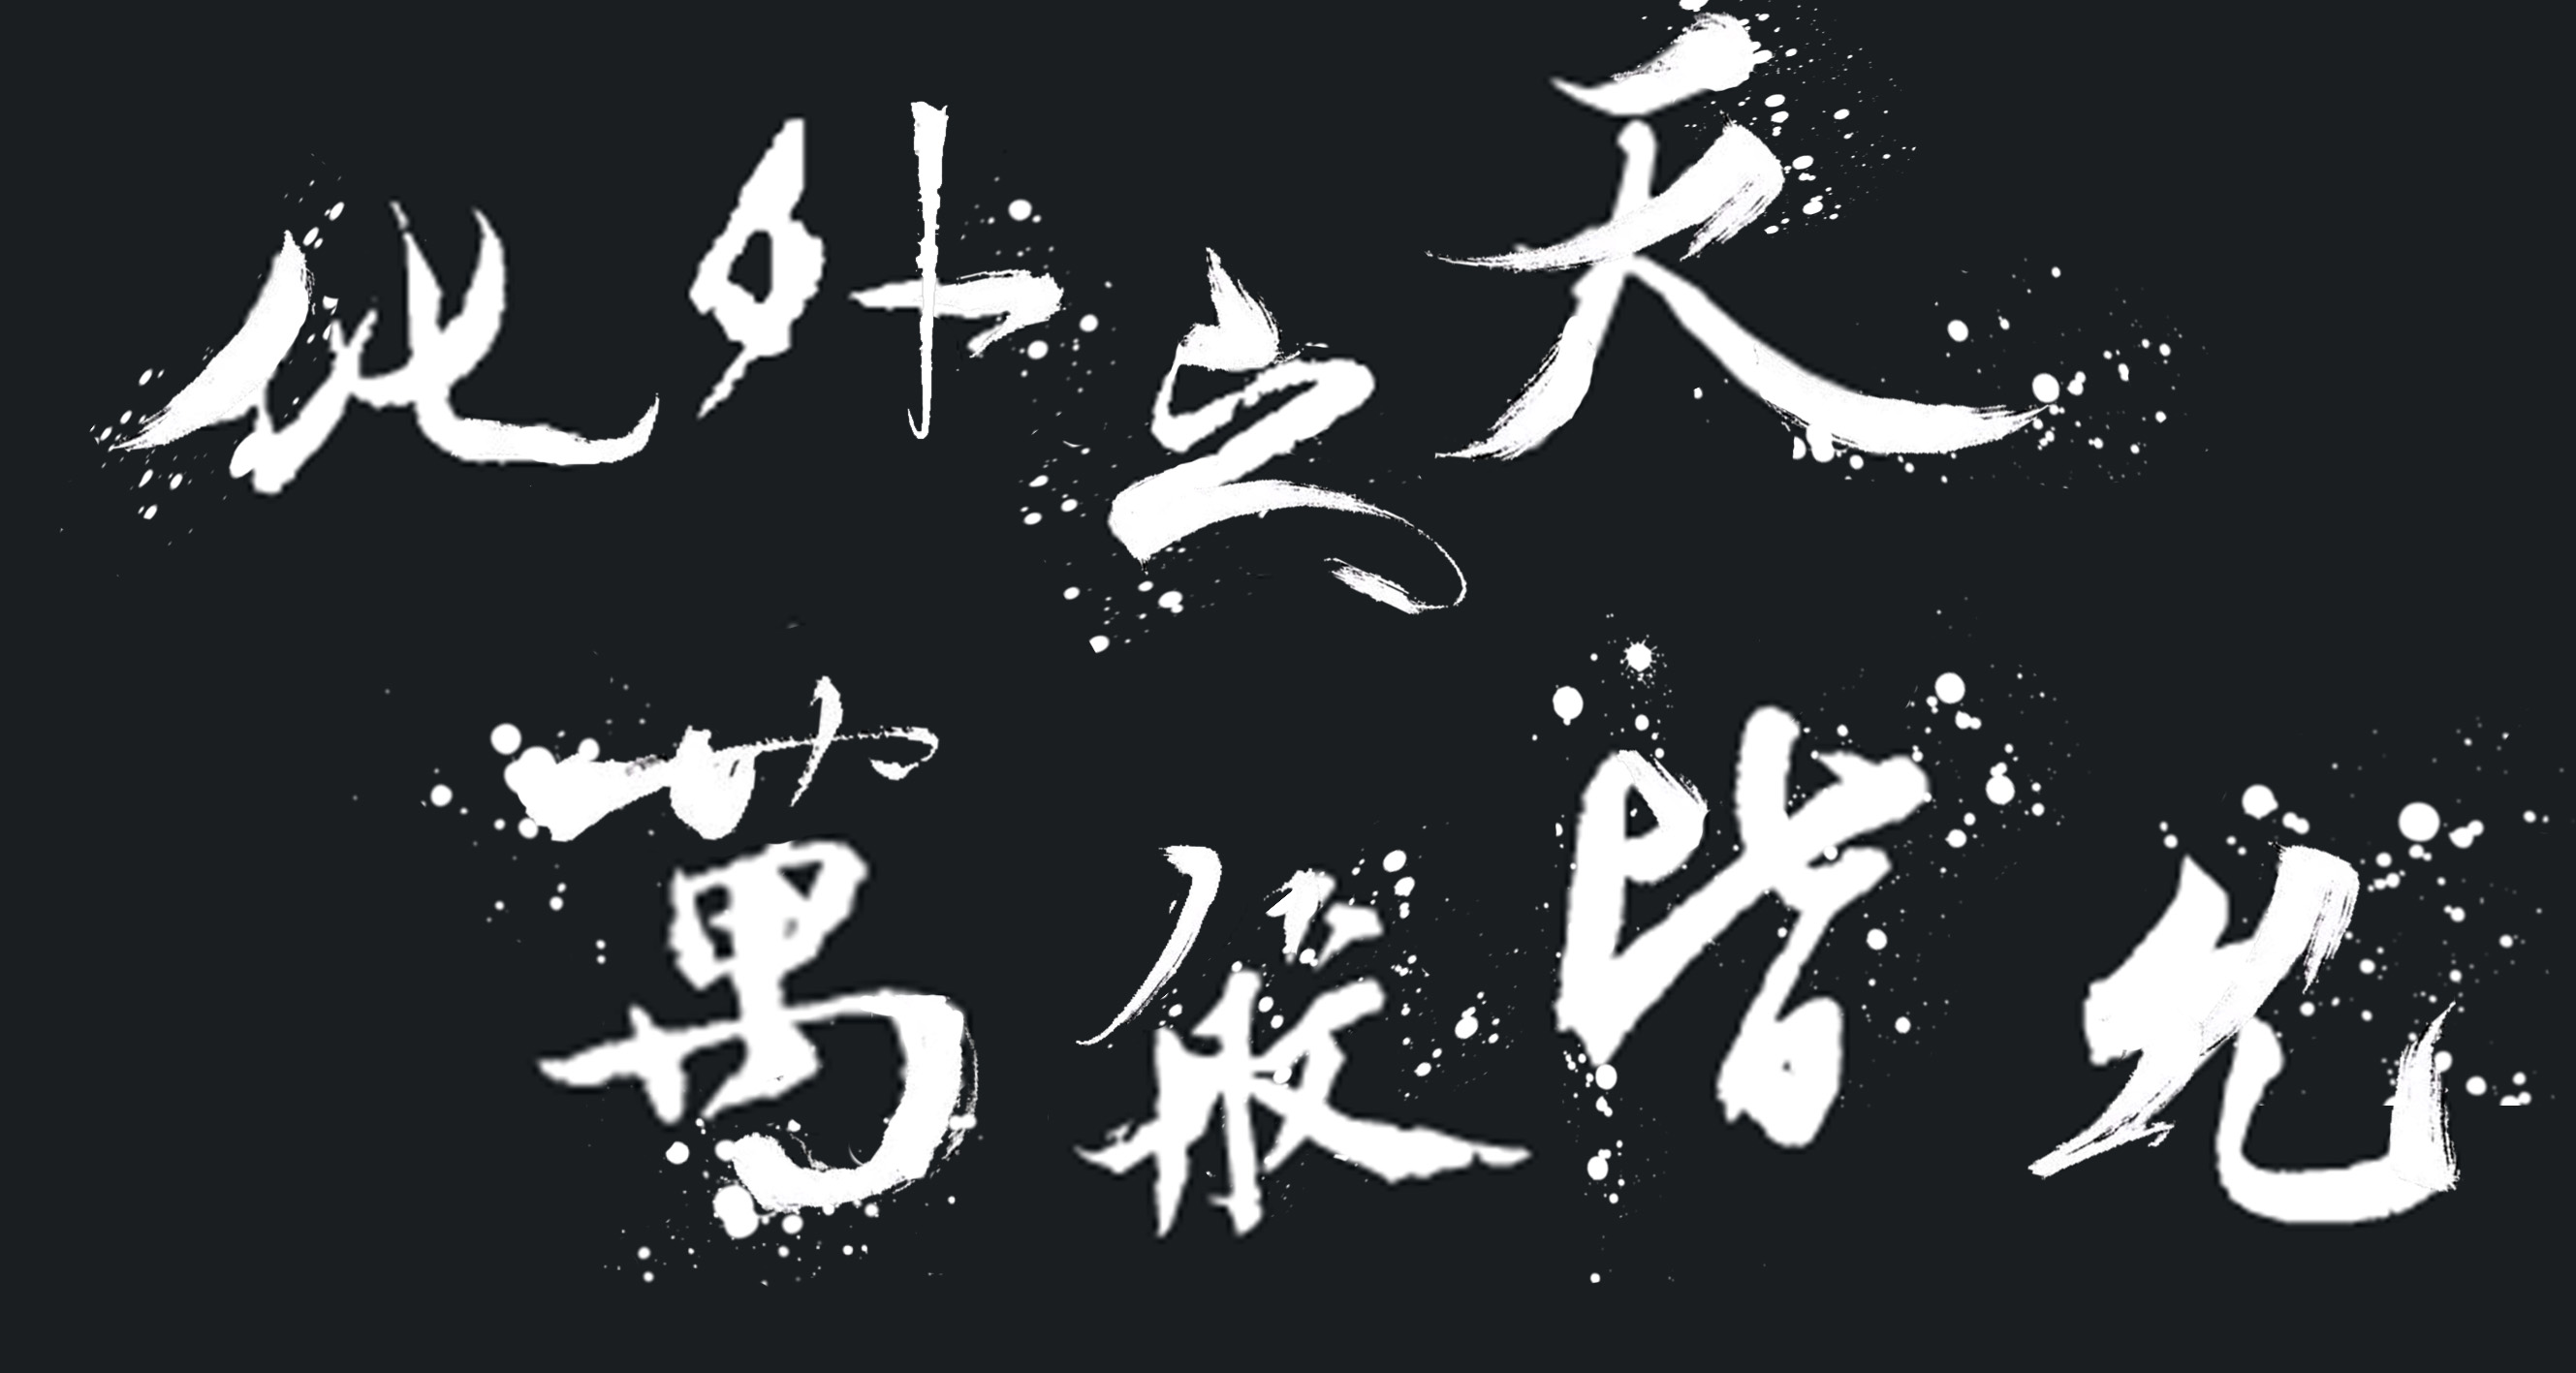 化外之天
萬般皆允